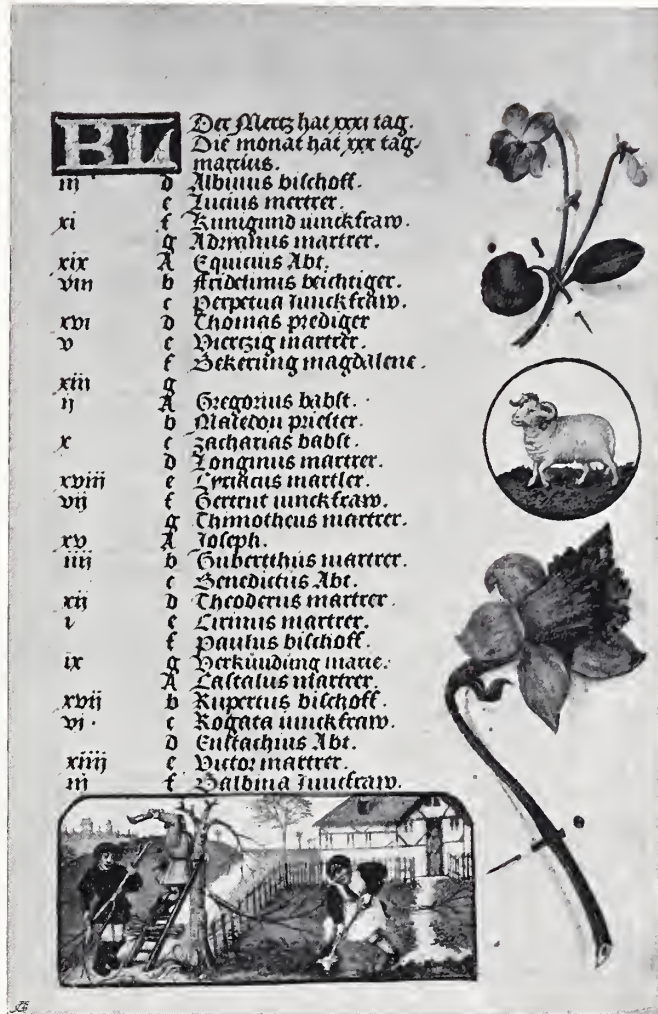 BL Der Mertz hat xxxi tag.
Die monat hat xxx tag.
martius.
iij d Albinus bischoff.
e Lucius mertrer.
xi f Kunigund iunckfraw.
g Adrianus martrer.
xix A Equicius Abt.
viii b fridelinus beichtiger.
c Perpetua Junckfraw.
xvi d Thomas prediger
v e Viertzig martrer.
f Bekerung magdalene.
xiii g
ij A Gregorius babst.
b Macedon priester.
x c Zacharias babst.
d Longinus martrer.
xviij e Cyriacus martler.
vij f Gertrut iunckfraw.
g Thimotheus martrer.
xv A Joseph.
iiij b Gubertthus martrer.
c Benedictus Abt.
xij d Theoderus martrer.
i e martrer.
f Paulus bischoff.
ix g Verkündung marie.
A Castalus martrer.
xvij b Rupertus bischoff.
vi c Rogata iunckfraw.
d Eustachius Abt.
xiiij e Victor martrer.
iij f Balbina Junckfraw.